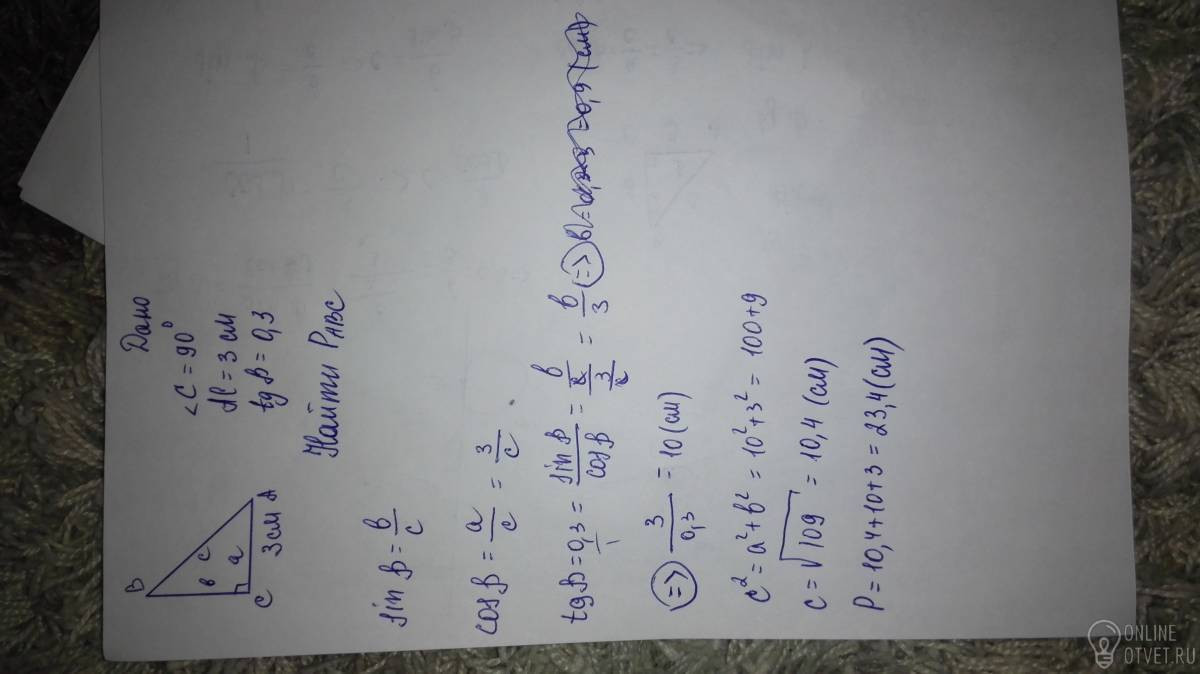 Дано
∠C = 90°
AC = 3 см
tg B = 0,3
Найти P ABC
B
c
в
a
C
3см
A
sin B = в/c
cos B = a/c = 3/c
tg B = 0,3/1 = sin B/cos B = (в/c)/(3/c) = в/3 (=>)
(=>) 3/0,3 = 10 (см)
c² = a² + b² = 10² + 3² = 100 + 9
c = √109 = 10,4 (см)
P = 10,4 + 10 + 3 = 23,4 (см)
ONLINE
OTVET.RU